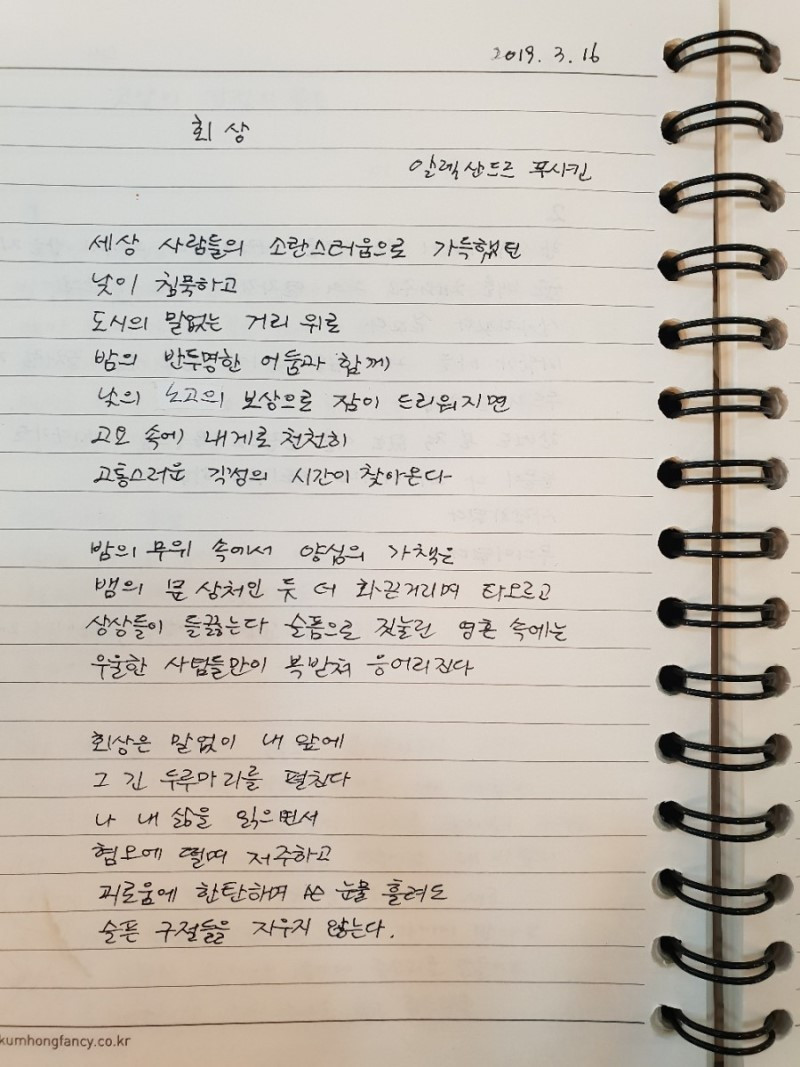 2019. 3. 16
회상
알렉산드르 푸시킨
세상 사람들의 소란스러움으로 가득했던
낮이 침묵하고
도시의 말없는 거리 위로
밤의 반투명한 어둠과 함께
낮의 노고의 보상으로 잠이 드리워지면
고요 속에 내게로 천천히
고통스러운 걱정의 시간이 찾아온다
밤의 무위 속에서 양심의 가책은
뱀의 문 상처인 듯 더 화끈거리며 타오르고
상상들이 들끓는다 슬픔으로 짓눌린 영혼 속에는
우울한 사념들만이 복받쳐 응어리진다
회상은 말없이 내 앞에
그 긴 두루마리를 펼친다
나 내 삶을 읽으면서
혐오에 떨며 저주하고
괴로움에 한탄하며 쓴 눈물 흘려도
슬픈 구절들을 지우지 않는다.
kumhongfancy.co.kr